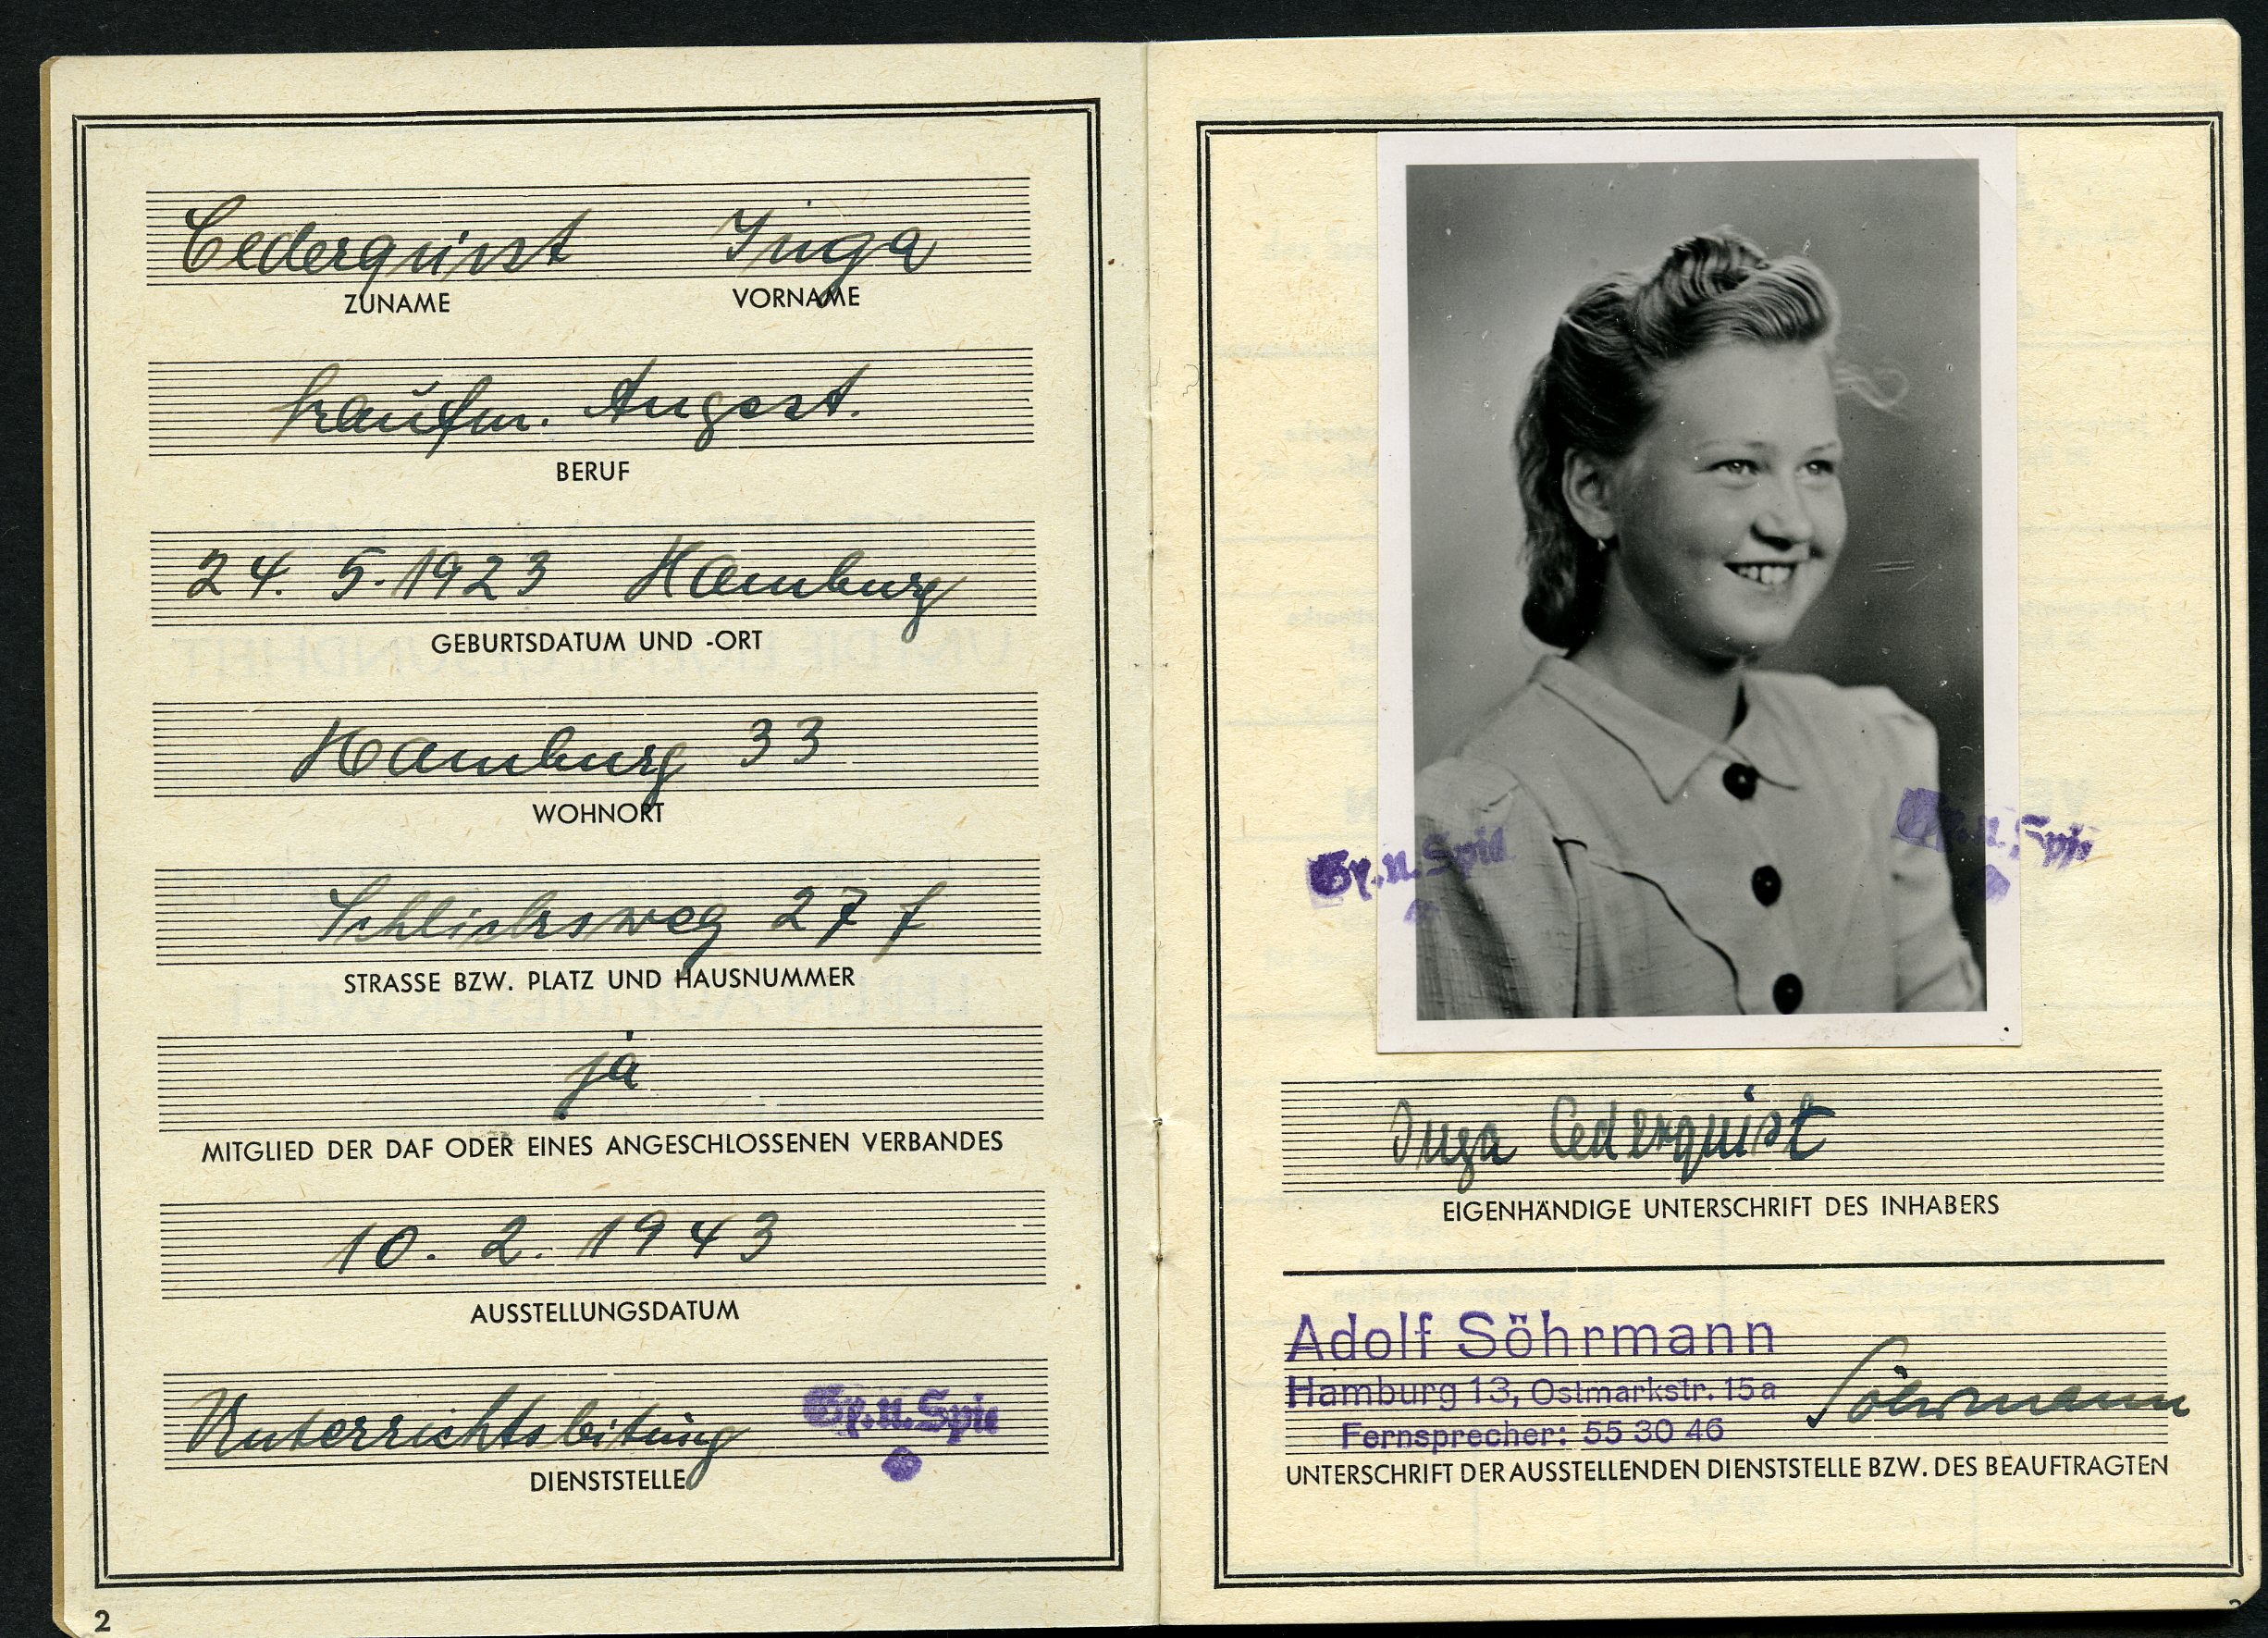 Cederquist Inga
ZUNAME VORNAME
kaufm. Angest.
BERUF
24. 5. 1923 Hamburg
GEBURTSDATUM UND -ORT
Hamburg 33
WOHNORT
Schlicksweg 27 f
STRASSE BZW. PLATZ UND HAUSNUMMER
ja
MITGLIED DER DAF ODER EINES ANGESCHLOSSENEN VERBANDES
10. 2. 1943
AUSSTELLUNGSDATUM
Unterrichtsleitung Sp.u.Spie
DIENSTSTELLE
2
Sp.u.Spie
Inga Cederquist
EIGENHÄNDIGE UNTERSCHRIFT DES INHABERS
Adolf Söhrmann
Hamburg 13, Ostmarkstr. 15a
Fernsprecher: 55 30 46
Söhrmann
UNTERSCHRIFT DER AUSSTELLENDEN DIENSTSTELLE BZW. DES BEAUFTRAGTEN